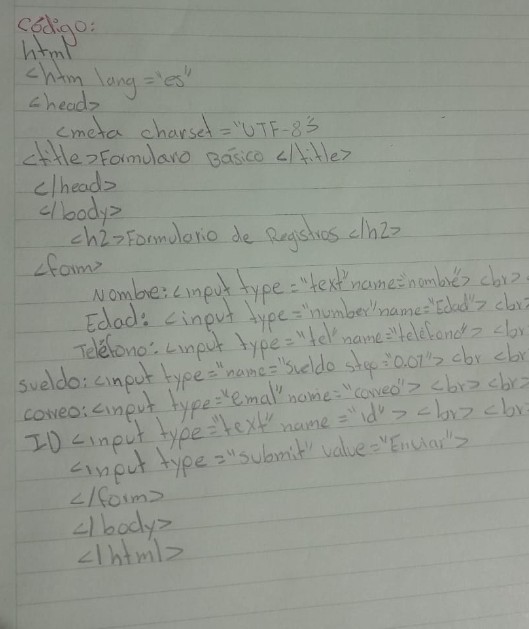 Código:
html
<htm lang ="es"
<head>
<meta charset ="UTF-8">
<title>Formularo Básico </title>
</head>
</body>
<h2>Formulario de Registros </h2>
<form>
Nombre:<input type="text"name="nombre"> <br>
Edad: <input type="number"name="Edad"> <br>
Teléfono: <input type="tel"name="teléfono"> <br
sueldo:<input type="name="sueldo step="0.01"> <br <br
correo:<input type="emal"name="correo"> <br> <br>
ID <input type="text" name ="id" > <br> <br
<input type ="submit" value="Enviar">
</form>
</body>
</html>